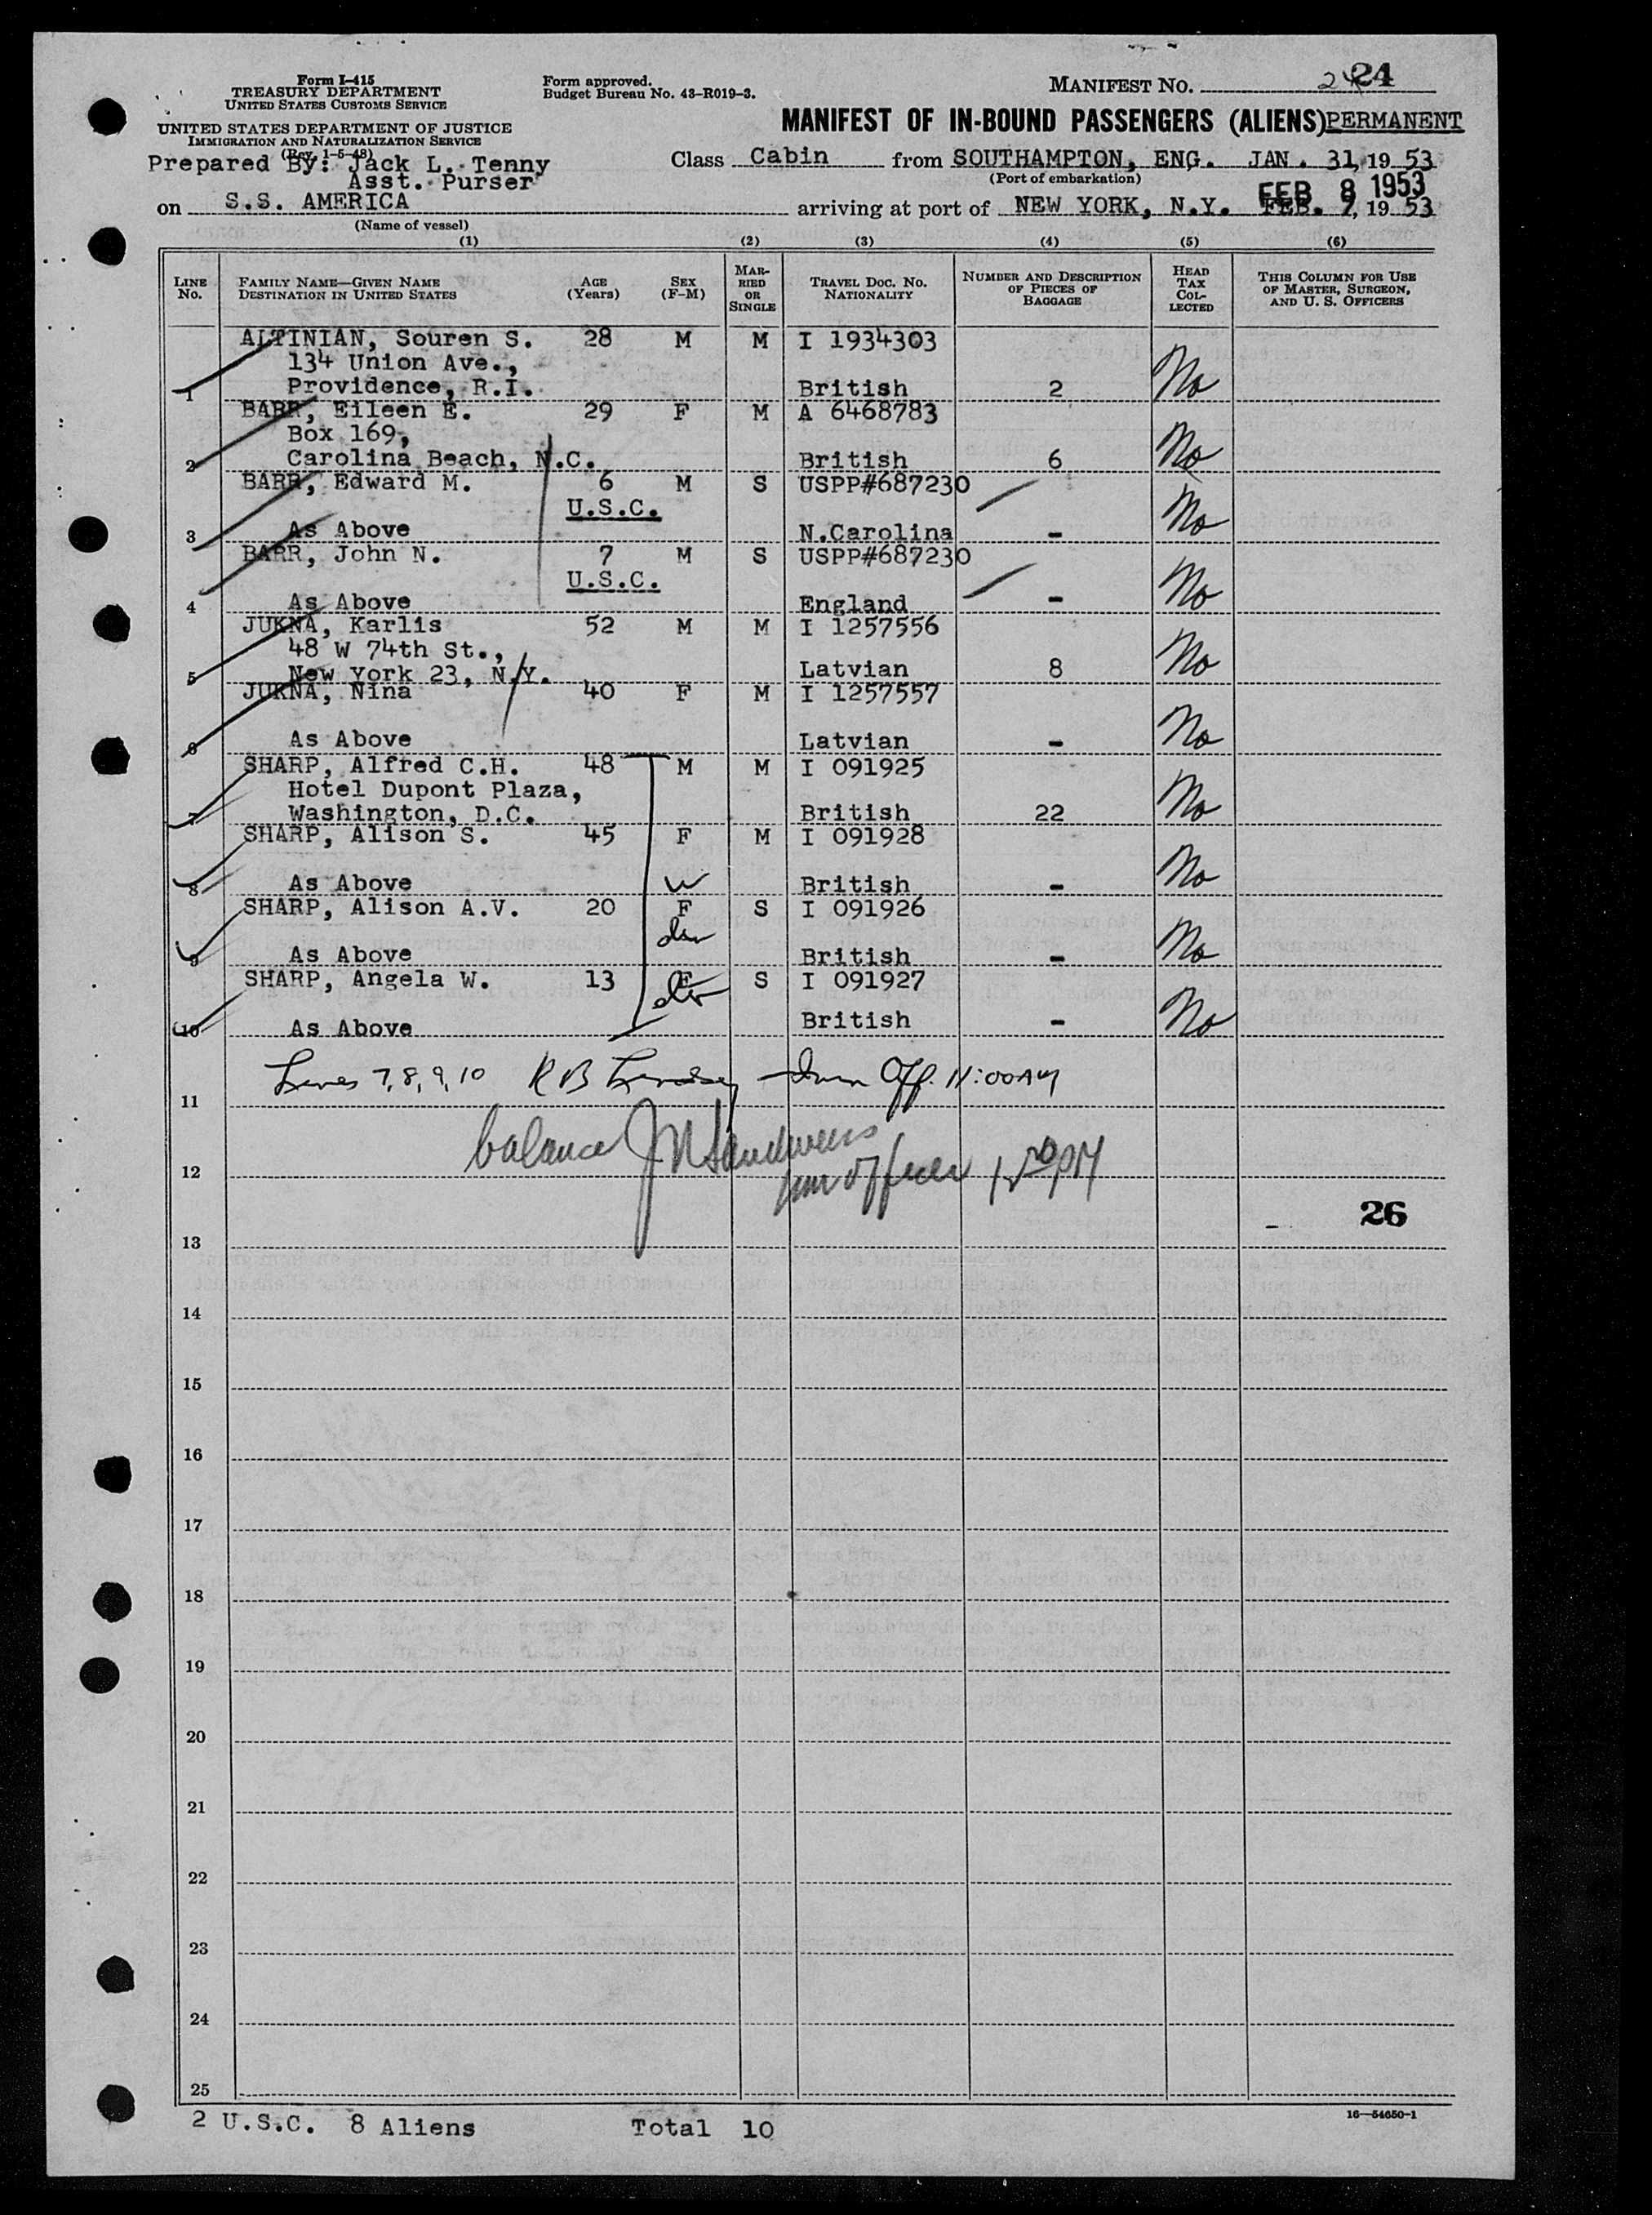 Form I-415
TREASURY DEPARTMENT
UNITED STATES CUSTOMS SERVICE
UNITED STATES DEPARTMENT OF JUSTICE
IMMIGRATION AND NATURALIZATION SERVICE
(Rev. 1-5-48)
Form approved.
Budget Bureau No. 43-R019-3.
MANIFEST NO. 24 24
MANIFEST OF IN-BOUND PASSENGERS (ALIENS) PERMANENT
Prepared By: Jack L. Tenny
Asst. Purser
Class Cabin from SOUTHAMPTON, ENG. JAN. 31, 19 53
(Port of embarkation)
FEB 8 1953
on S.S. AMERICA arriving at port of NEW YORK, N.Y. FEB. 7, 19 53
(Name of vessel)
(1) (2) (3) (4) (5) (6)
LINE No. FAMILY NAME—GIVEN NAME DESTINATION IN UNITED STATES AGE (Years) SEX (F-M) MARRIED OR SINGLE TRAVEL DOC. NO. NATIONALITY NUMBER AND DESCRIPTION OF PIECES OF BAGGAGE HEAD TAX COLLECTED THIS COLUMN FOR USE OF MASTER, SURGEON, AND U. S. OFFICERS
ALTINIAN, Souren S. 28 M M I 1934303
134 Union Ave.,
1 Providence, R.I. British 2 No
BARR, Eileen E. 29 F M A 6468783
Box 169,
2 Carolina Beach, N.C. British 6 No
BARR, Edward M. 6 M S USPP#687230
U.S.C.
3 As Above N.Carolina - No
BARR, John N. 7 M S USPP#687230
U.S.C.
4 As Above England - No
JUKNA, Karlis 52 M M I 1257556
48 W 74th St.,
5 New York 23, N.Y. Latvian 8 No
JUKNA, Nina 40 F M I 1257557
6 As Above Latvian - No
SHARP, Alfred C.H. 48 M M I 091925
Hotel Dupont Plaza,
7 Washington, D.C. British 22 No
SHARP, Alison S. 45 F M I 091928
8 As Above British - No
SHARP, Alison A.V. 20 F S I 091926
9 As Above British - No
SHARP, Angela W. 13 F S I 091927
10 As Above British - No
Lines 7, 8, 9, 10 R B Imm Off. 11:00AM
11
balance
imm officer PM
12
26
13
14
15
16
17
18
19
20
21
22
23
24
25
2 U.S.C. 8 Aliens Total 10
16—54650-1